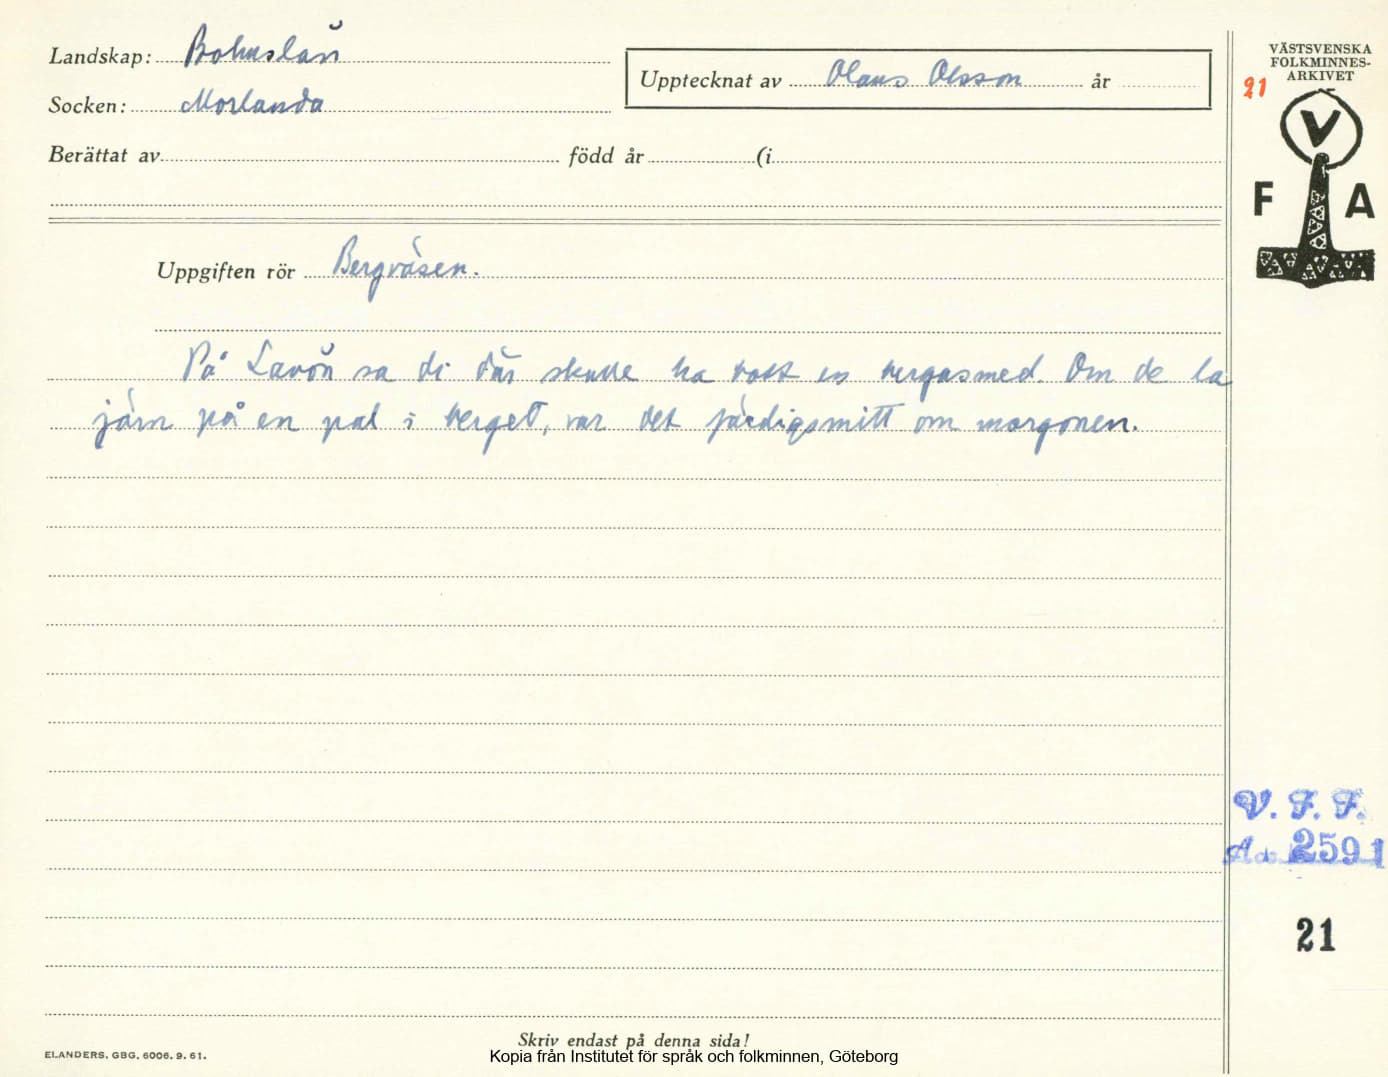 Landskap: Bohuslän
Socken: Morlanda
Upptecknat av Olaus Olsson år
Berättat av född år (i
VÄSTSVENSKA
FOLKMINNES-
ARKIVET
21
V
F A
Uppgiften rör Bergväsen.
På Lavön sa di där skulle ha bott en bergasmed. Om de la
järn på en pal i berget, var det färdigsmitt om morgonen.
V. F. F.
Acc. 2591
21
Skriv endast på denna sida!
ELANDERS. GBG. 6006. 9. 61.
Kopia från Institutet för språk och folkminnen, Göteborg